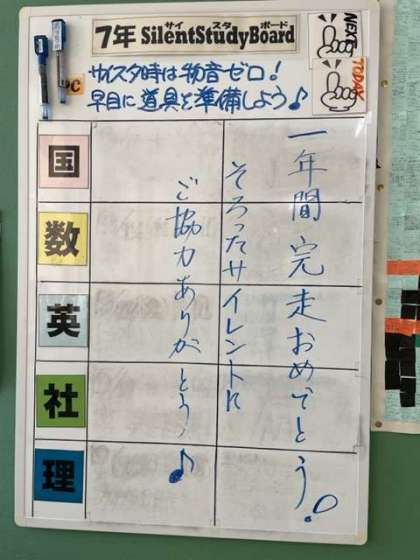 サイ スタ ボード
7年 SilentStudyBoard
NEXT
TODAY
サイスタ時は物音ゼロ!
早目に道具を準備しよう♪
国
数
英
社
理
一年間完走おめでとう!
そろったサイレントに
ご協力ありがとう♪